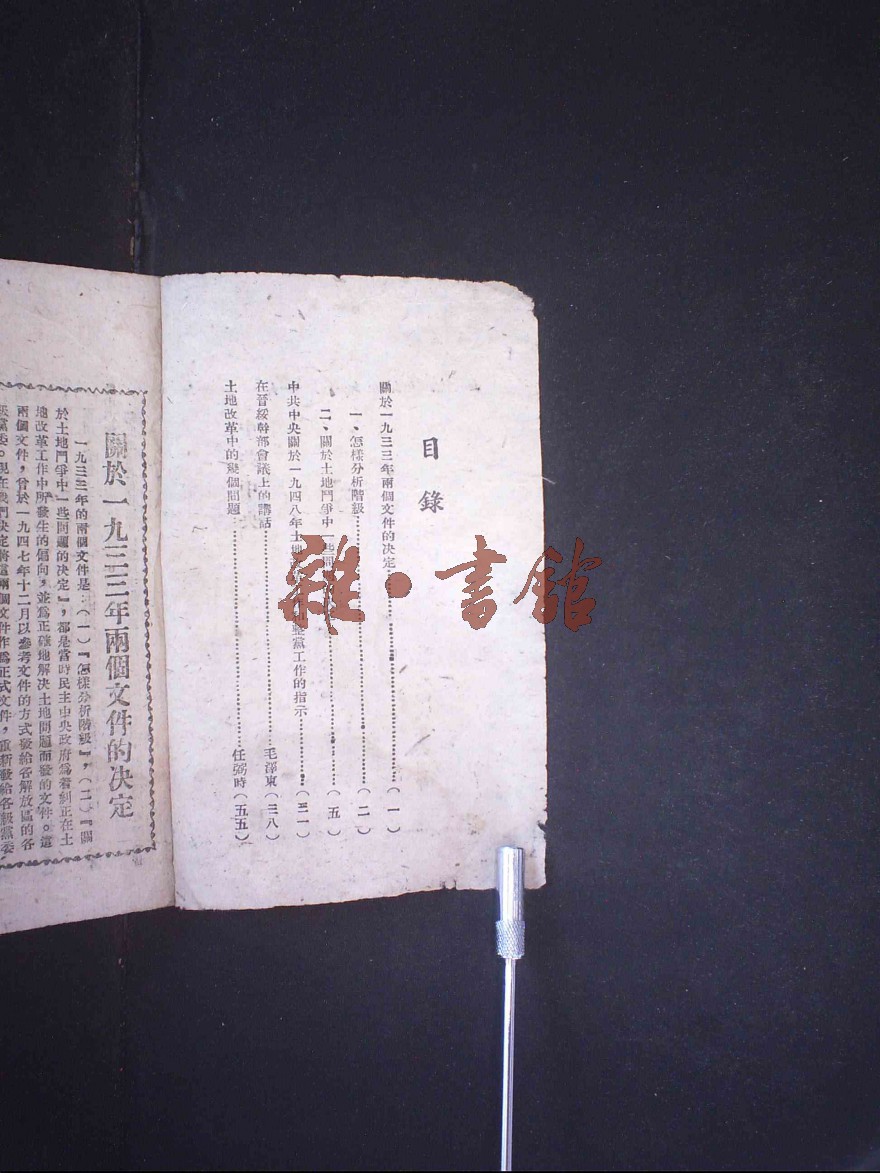 目錄
關於一九三三年兩個文件的決定……(一)
一、怎樣分析階級……(二)
二、關於土地鬥爭中一些……(五)
中共中央關於一九四八年土地……整黨工作的指示……(三一)
在晉綏幹部會議上的講話……毛澤東(三八)
土地改革中的幾個問題……任弼時(五五)
關於一九三三年兩個文件的决定
一九三三年的兩個文件是:(一)『怎樣分析階級』,(二)『關
於土地鬥爭中一些問題的决定』,都是當時民主中央政府爲着糾正在土
地改革工作中所發生的偏向,並爲正確地解決土地問題而發的文件。這
兩個文件,曾於一九四七年十二月以參考文件的方式發給各解放區的各
級黨委。現在我們決定將這兩個文件作爲正式文件,重新發給各級黨委
雜·書館